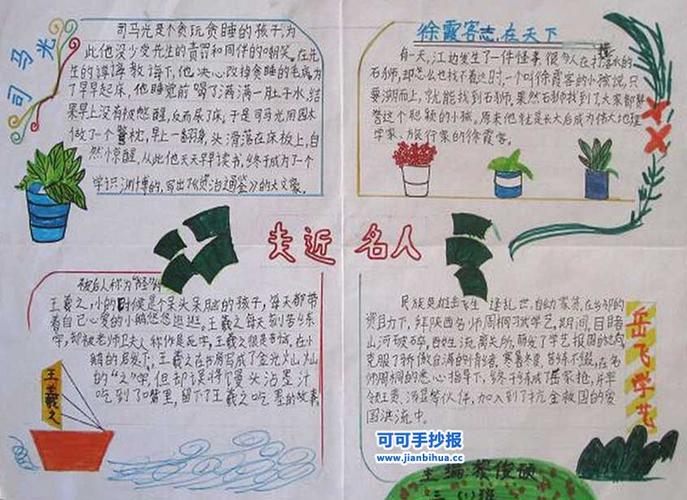 司马光
司马光是个贪玩贪睡的孩子,为
此他没少受先生的责罚和同伴的嘲笑。在先
生的谆谆教诲下,他决心改掉贪睡的毛病,为
了早早起床,他睡觉前喝了满满一肚子水,结
果早上没有被憋醒,反而尿了床,于是司马光用园木
做了一个警枕,早上一翻身,头滑落在床板上,自
然惊醒,从此他天天早读书,终于成为了一个
学识渊博的,写出《资治通鉴》的大文豪。
徐霞客志在天下
有一天,江边发生了一件怪事,很多人在打落水的
石狮,却怎么也找不着这时,一个叫徐霞客的小孩说,只
要溯而上,就能找到石狮,果然石狮找到了大家都
誉这个聪颖的小孩,原来他就是长大后成为伟大地理
学家、旅行家的徐霞客。
走近名人
被后人称为
王羲之,小的时候是个呆头呆脑的孩子,每天都带
着自己心爱的小鹅悠悠逛逛。王羲之每天刻苦练
字,却被老师卫夫人称作是死字,王羲之很是苦恼,在小
鹅的启发下,王羲之在书房写成了金光灿灿
的“之”字,但却误将馒头沾墨汁
吃到了嘴里,留下了王羲之吃墨的故事。
王羲之
民族英雄岳飞生逢乱世,自幼家贫,在乡邻的
资助下,拜陕西名师周桐习武学艺,期间,目睹
山河破碎,百姓流离失所,萌发了学艺报国的志
克服了骄傲自满的情绪。寒暑冬夏,苦练不缀,在名
师周桐的悉心指导下,终于练成了岳家枪,并率
领王贵,汤显等伙伴,加入到了抗金救国的爱
国洪流中。
岳飞学艺
可可手抄报
www.jianbihua.cc
主编:蔡俊
三(1)班